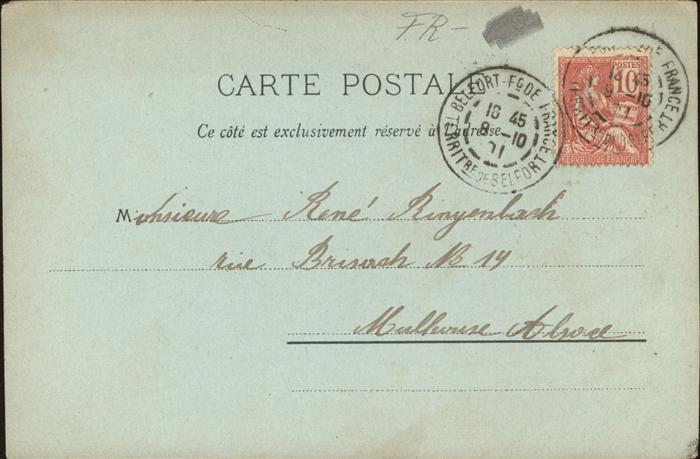 FR-
CARTE POSTALE
Ce côté est exclusivement réservé à l'adresse
BELFORT-FG DE FRANCE
16 45
8 -10
01
TERRITRE DE BELFORT
POSTES
10
REPUBLIQUE FRANÇAISE
Monsieur René Ringenbach
rue Brisach No 14
Mulhouse Alsace